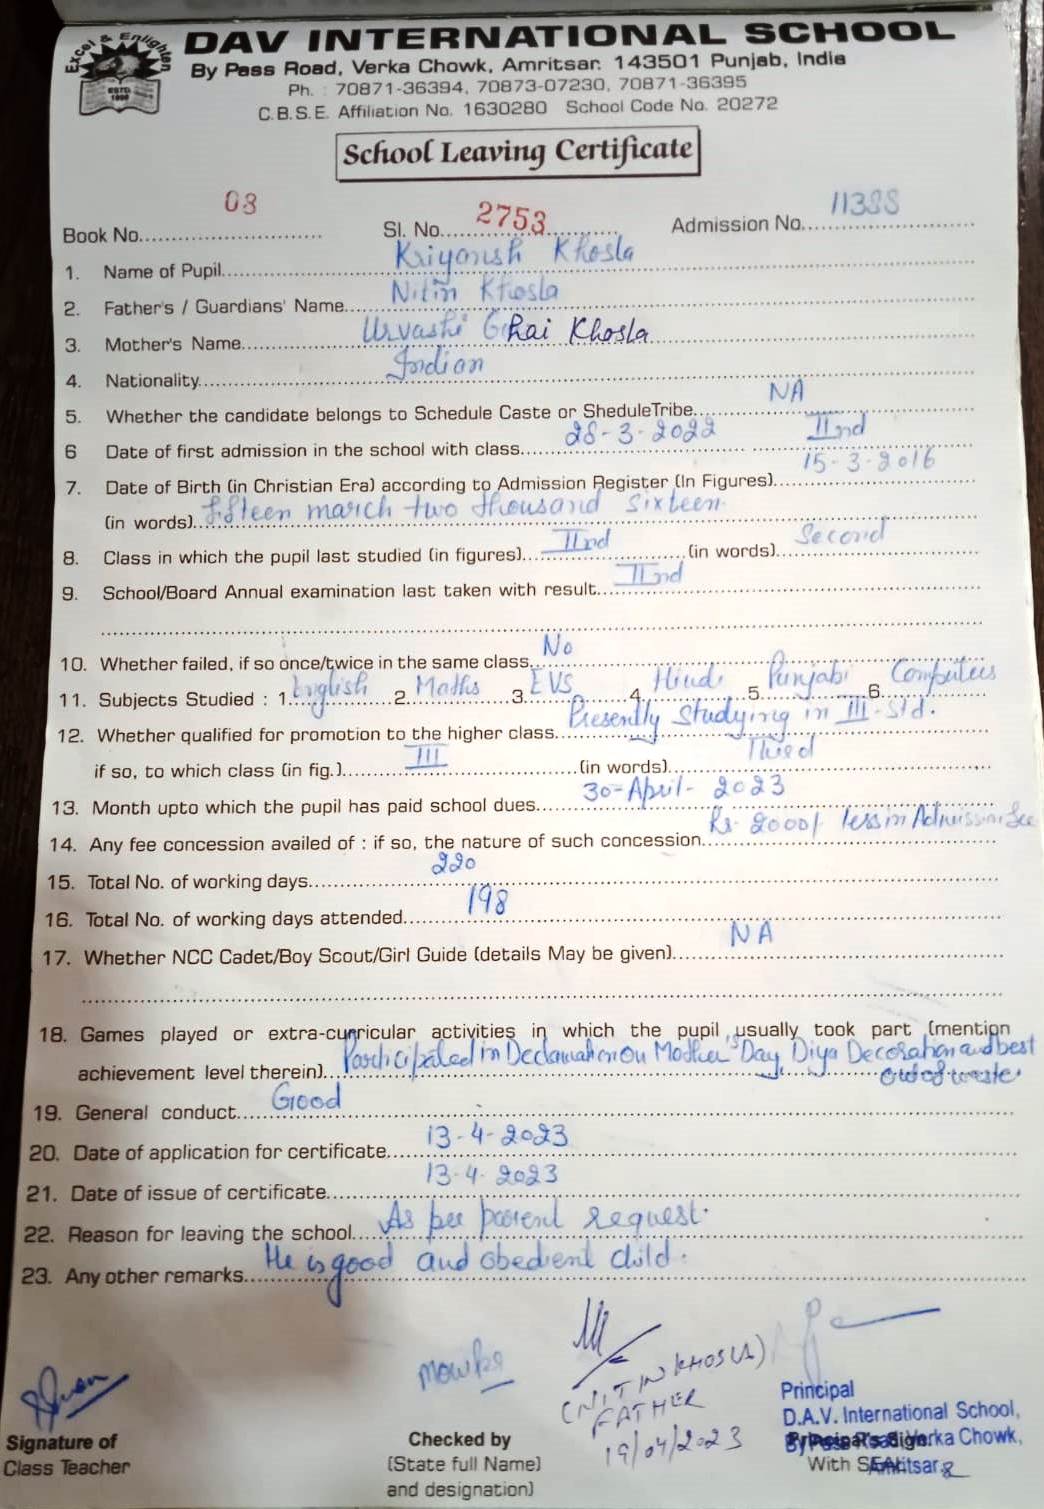 Excel & Enlighten
ESTD.
DAV INTERNATIONAL SCHOOL
By Pass Road, Verka Chowk, Amritsar. 143501 Punjab, India
Ph. : 70871-36394, 70873-07230, 70871-36395
C.B.S.E. Affiliation No. 1630280 School Code No. 20272
School Leaving Certificate
Book No. 03 Sl. No. 2753 Admission No. 11388
1. Name of Pupil. Kriyansh Khosla
2. Father's / Guardians' Name. Nitin Khosla
3. Mother's Name. Urvashi Ghai Khosla
4. Nationality. Indian
5. Whether the candidate belongs to Schedule Caste or SheduleTribe. NA
6 Date of first admission in the school with class. 28-3-2022 IInd
7. Date of Birth (in Christian Era) according to Admission Register (In Figures). 15-3-2016
(in words). fifteen march two thousand sixteen.
8. Class in which the pupil last studied (in figures). IInd (in words). Second
9. School/Board Annual examination last taken with result. IInd
10. Whether failed, if so once/twice in the same class. No
11. Subjects Studied : 1. English 2. Maths 3. EVS 4. Hindi 5. Punjabi 6. Computers
12. Whether qualified for promotion to the higher class. Presently Studying in III-Std.
if so, to which class (in fig.). III (in words). Third
13. Month upto which the pupil has paid school dues. 30-April-2023
14. Any fee concession availed of : if so, the nature of such concession. Rs. 2000/ less in Admission fee
15. Total No. of working days. 220
16. Total No. of working days attended. 198
17. Whether NCC Cadet/Boy Scout/Girl Guide (details May be given). NA
18. Games played or extra-curricular activities in which the pupil usually took part (mention
achievement level therein). Participated in Declamation On Mother's Day, Diya Decoration and best
out of waste.
19. General conduct. Good
20. Date of application for certificate. 13-4-2023
21. Date of issue of certificate. 13-4-2023
22. Reason for leaving the school. As per parent request.
23. Any other remarks. He is good and obedient child.
(NITIN KHOSLA)
FATHER
19/04/2023
Signature of
Class Teacher
Checked by
(State full Name)
and designation)
Principal
D.A.V. International School,
By Pass Road, Verka Chowk,
Amritsar
Principal's Sign.
With SEAL